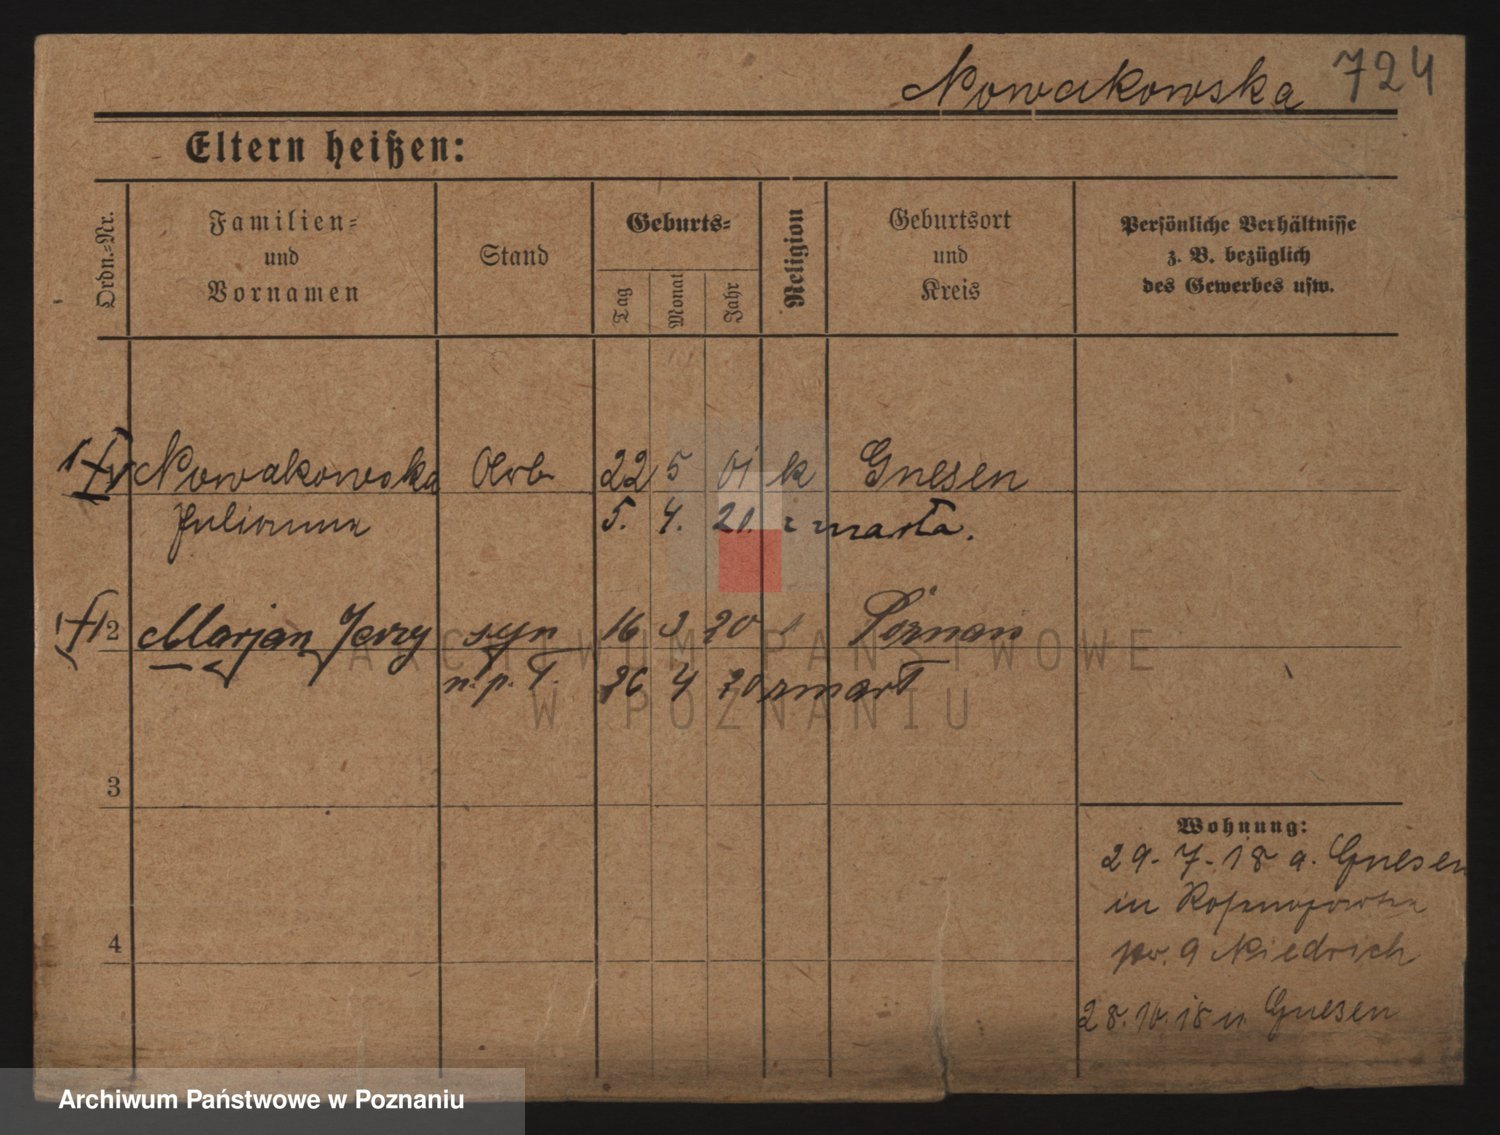 Nowakowska 724
Eltern heißen:
Ordn.-Nr.
Familien-
und
Vornamen
Stand
Geburts-
Tag
Monat
Jahr
Religion
Geburtsort
und
Kreis
Persönliche Verhältnisse
z. B. bezüglich
des Gewerbes usw.
1 Nowakowska Arb 22 5 01 k Gnesen
Julianna 5. 4. 21. zmarła.
2 Marjan Jerzy syn 16 3 20 Poznań
n. p. T. 26 4 20 zmarł
3
4
Wohnung:
29-7-18 a. Gnesen
in
pr. 9 Niedrich
28.10.18 n Gnesen
ARCHIWUM PAŃSTWOWE
W POZNANIU
Archiwum Państwowe w Poznaniu